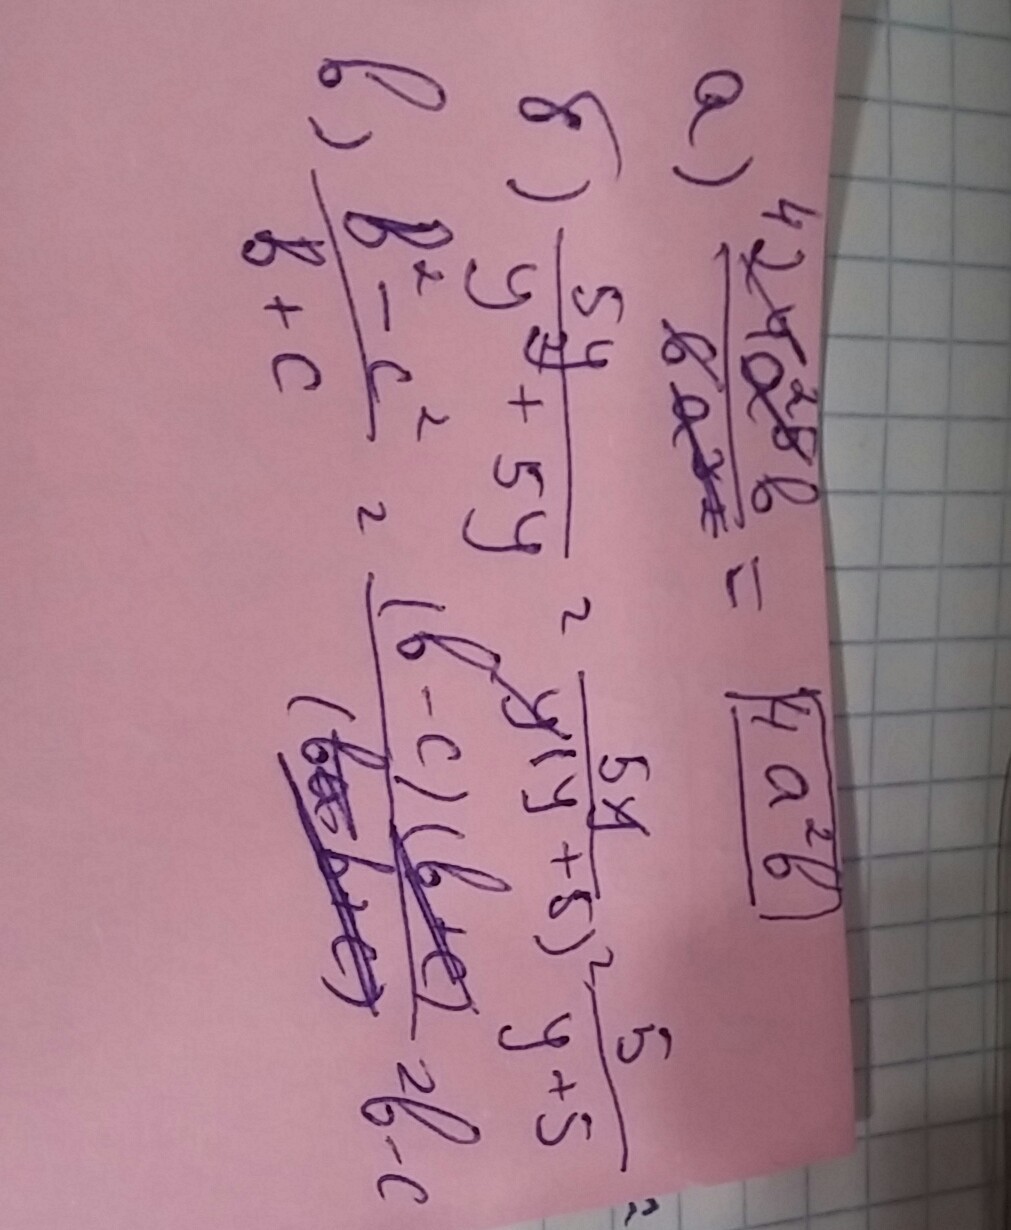 а) 4 24a²b / 6a = 4a²b
б) 5y / y² + 5y = 5y / y(y + 5) = 5 / y + 5 =
в) b² - c² / b + c = (b - c)(b + c) / (b + c) = b - c